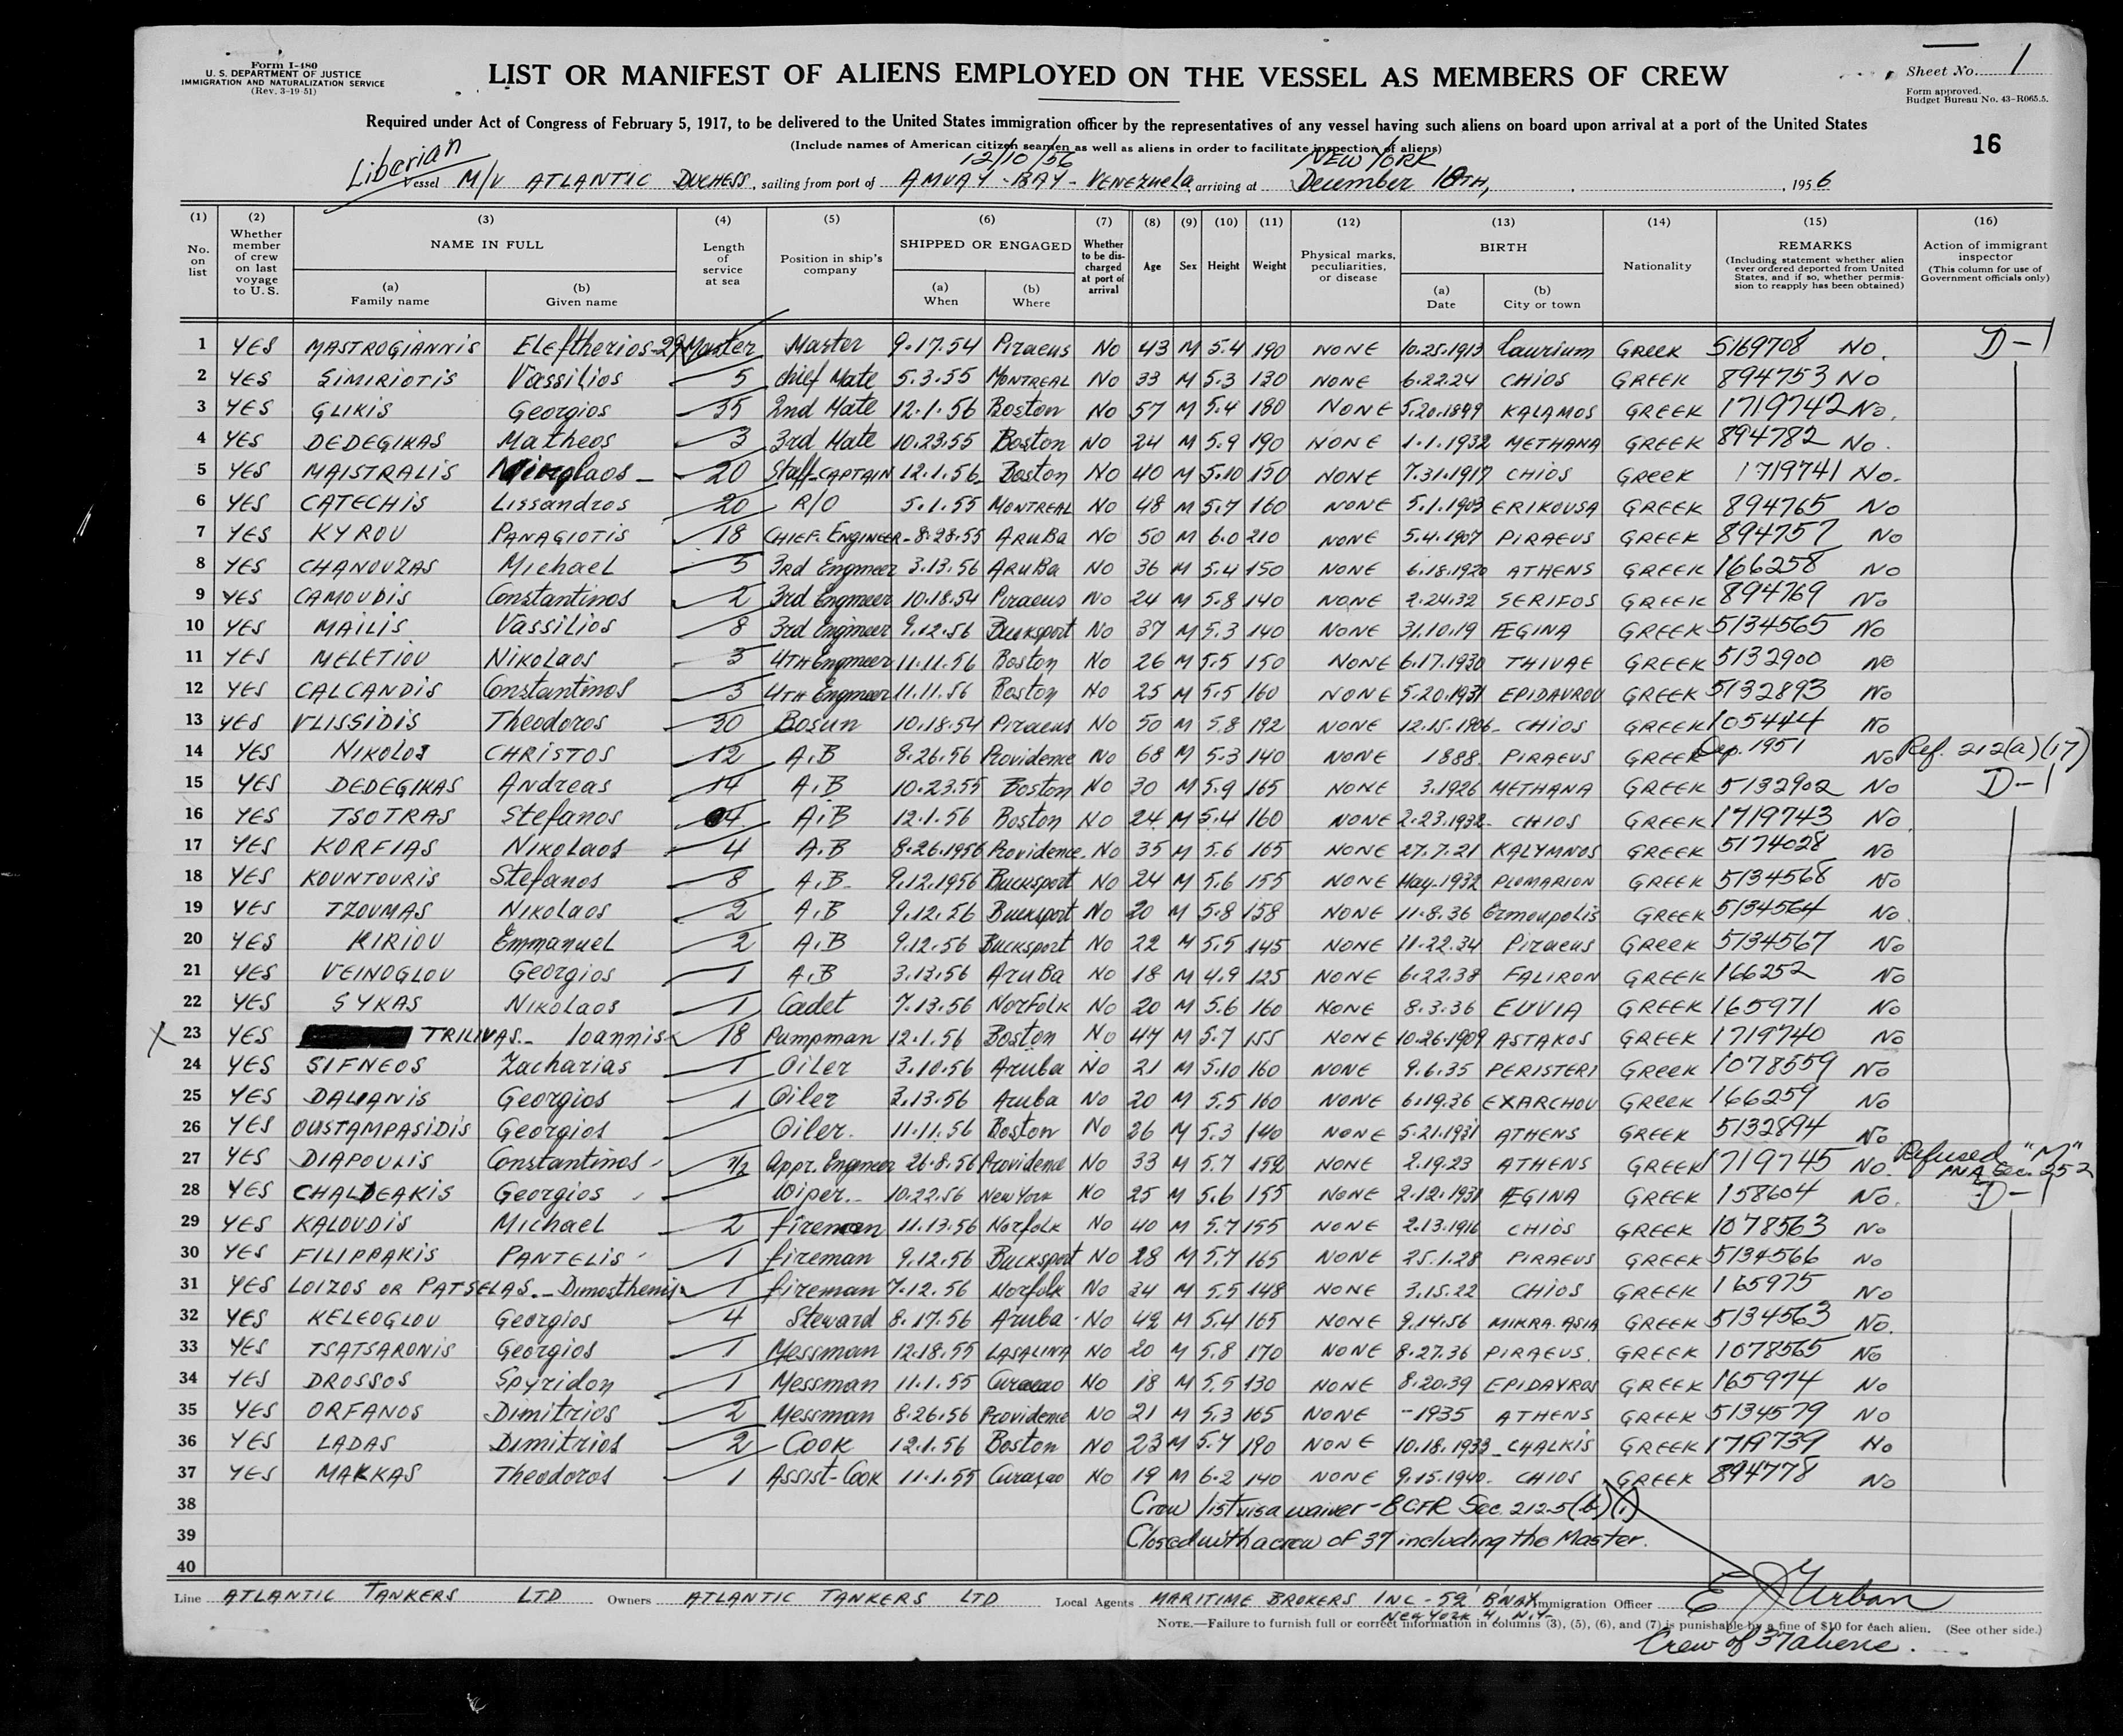 Form I-480
U. S. DEPARTMENT OF JUSTICE
IMMIGRATION AND NATURALIZATION SERVICE
(Rev. 3-19-51)
LIST OR MANIFEST OF ALIENS EMPLOYED ON THE VESSEL AS MEMBERS OF CREW
Sheet No. 1
Form approved.
Budget Bureau No. 43-R065.5.
Required under Act of Congress of February 5, 1917, to be delivered to the United States immigration officer by the representatives of any vessel having such aliens on board upon arrival at a port of the United States
(Include names of American citizen seamen as well as aliens in order to facilitate inspection of aliens)
16
Liberian 12/10/56 NEW YORK
Vessel M/V ATLANTIC DUCHESS, sailing from port of AMUAY-BAY-VENEZUELA, arriving at December 10TH, 1956
(1) No. on list
(2) Whether member of crew on last voyage to U. S.
(3) NAME IN FULL (a) Family name (b) Given name
(4) Length of service at sea
(5) Position in ship's company
(6) SHIPPED OR ENGAGED (a) When (b) Where
(7) Whether to be discharged at port of arrival
(8) Age
(9) Sex
(10) Height
(11) Weight
(12) Physical marks, peculiarities, or disease
(13) BIRTH (a) Date (b) City or town
(14) Nationality
(15) REMARKS (Including statement whether alien ever ordered deported from United States, and if so, whether permission to reapply has been obtained)
(16) Action of immigrant inspector (This column for use of Government officials only)
1 YES MASTROGIANNIS Eleftherios 29 Master Master 9.17.54 Piraeus No 43 M 5.4 190 NONE 10.25.1913 Laurium GREEK 5169708 NO. D-1
2 YES SIMIRIOTIS Vassilios 5 chief Mate 5.3.55 MONTREAL No 33 M 5.3 130 NONE 6.22.24 CHIOS GREEK 894753 NO
3 YES GLIKIS Georgios 35 2nd Mate 12.1.56 Boston No 57 M 5.4 180 NONE 5.20.1899 KALAMOS GREEK 1719742 No.
4 YES DEDEGIKAS Matheos 3 3rd Mate 10.23.55 Boston NO 24 M 5.9 190 NONE 1.1.1932 METHANA GREEK 894782 No.
5 YES MAISTRALIS Nikolaos 20 Staff-CAPTAIN 12.1.56 Boston No 40 M 5.10 150 NONE 7.31.1917 CHIOS Greek 1719741 No.
6 YES CATECHIS Lissandros 20 R/O 5.1.55 MONTREAL No 48 M 5.7 160 NONE 5.1.1903 ERIKOUSA GREEK 894765 No
7 YES KYROU PANAGIOTIS 18 CHIEF. ENGINEER 8.28.55 ARUBA No 50 M 6.0 210 NONE 5.4.1907 PIRAEUS GREEK 894757 No
8 YES CHANOUZAS Michael 5 3RD Engineer 3.13.56 ARUBA NO 36 M 5.4 150 NONE 6.18.1920 ATHENS GREEK 166258 No
9 YES CAMOUDIS Constantinos 2 3rd Engineer 10.18.54 Piraeus No 24 M 5.8 140 NONE 2.24.32 SERIFOS GREEK 894769 No
10 YES MAILIS Vassilios 8 3rd Engineer 9.12.56 Bucksport No 37 M 5.3 140 NONE 31.10.19 ÆGINA GREEK 5134565 No
11 YES MELETIOU Nikolaos 3 4TH Engineer 11.11.56 Boston No 26 M 5.5 150 NONE 6.17.1930 THIVAE GREEK 5132900 No
12 YES CALCANDIS Constantinos 3 4TH Engineer 11.11.56 Boston No 25 M 5.5 160 NONE 5.20.1931 EPIDAVROU GREEK 5132893 No
13 YES VLISSIDIS Theodoros 30 Bosun 10.18.54 Piraeus NO 50 M 5.8 192 NONE 12.15.1906 CHIOS GREEK 105444 No
14 YES NIKOLOS CHRISTOS 12 A.B 8.26.56 Providence NO 68 M 5.3 140 NONE 1888 PIRAEUS GREEK Dep. 1951 No Ref. 212(a)(17)
15 YES DEDEGIKAS Andreas 14 A.B 10.23.55 Boston NO 30 M 5.9 165 NONE 3.1926 METHANA GREEK 5132902 No D-1
16 YES TSOTRAS Stefanos 4 A.B 12.1.56 Boston NO 24 M 5.4 160 NONE 2.23.1932 CHIOS GREEK 1719743 No.
17 YES KORFIAS NIKOLAOS 4 A.B 8.26.1956 Providence. No 35 M 5.6 165 NONE 27.7.21 KALYMNOS GREEK 5174028 No
18 YES KOUNTOURIS Stefanos 8 A.B 9.12.1956 Bucksport No 24 M 5.6 155 NONE May.1932 PLOMARION GREEK 5134568 No
19 YES TZOUMAS NIKOLAOS 2 A.B 9.12.56 Bucksport No 20 M 5.8 158 NONE 11.8.36 Ermoupolis GREEK 5134564 No.
20 YES KIRIOU Emmanuel 2 A.B 9.12.56 Bucksport No 22 M 5.5 145 NONE 11.22.34 Piraeus GREEK 5134567 No
21 YES VEINOGLOU Georgios 1 A.B 3.13.56 Aruba No 18 M 4.9 125 NONE 6.22.38 FALIRON GREEK 166252 No
22 YES SYKAS NIKOLAOS 1 Cadet 7.13.56 NORFOLK NO 20 M 5.6 160 NONE 8.3.36 EUVIA GREEK 165971 No
X 23 YES TRILIVAS. Ioannis 18 Pumpman 12.1.56 Boston No 47 M 5.7 155 NONE 10.26.1909 ASTAKOS GREEK 1719740 No
24 YES SIFNEOS Zacharias 1 Oiler 3.10.56 Aruba No 21 M 5.10 160 NONE 9.6.35 PERISTERI GREEK 1078559 No
25 YES DALIANIS Georgios 1 Oiler 3.13.56 Aruba No 20 M 5.5 160 NONE 6.19.36 EXARCHOU GREEK 166259 No
26 YES OUSTAMPASIDIS Georgios Oiler. 11.11.56 Boston No 26 M 5.3 140 NONE 5.21.1931 ATHENS GREEK 5132894 No
27 YES DIAPOULIS Constantinos 7/2 Appr. Engineer 26.8.56 Providence NO 33 M 5.7 152 NONE 2.19.23 ATHENS GREEK 1719745 No. Refused "M" INA Sec. 252
28 YES CHALDEAKIS Georgios Wiper 10.22.56 New York No 25 M 5.6 155 NONE 2.12.1931 ÆGINA GREEK 158604 No. D-1
29 YES KALOUDIS Michael 2 fireman 11.13.56 Norfolk No 40 M 5.7 155 NONE 2.13.1916 CHIOS GREEK 1078563 No
30 YES FILIPPAKIS PANTELIS 1 fireman 9.12.56 Bucksport NO 28 M 5.7 165 NONE 25.1.28 PIRAEUS GREEK 5134566 No
31 YES LOIZOS OR PATSELAS. Dimosthenis 1 fireman 7.12.56 Norfolk No 34 M 5.5 148 NONE 3.15.22 CHIOS GREEK 165975 No
32 YES KELEOGLOU Georgios 4 Steward 8.17.56 Aruba No 42 M 5.4 165 NONE 9.14.56 MIKRA. ASIA GREEK 5134563 No.
33 YES TSATSARONIS Georgios 1 Messman 12.18.55 LASALINA NO 20 M 5.8 170 NONE 8.27.36 PIRAEUS. GREEK 1078565 No
34 YES DROSSOS Spyridon 1 Messman 11.1.55 Curacao NO 18 M 5.5 130 NONE 8.20.39 EPIDAVROS GREEK 165974 No
35 YES ORFANOS Dimitrios 2 Messman 8.26.56 Providence NO 21 M 5.3 165 NONE -1935 ATHENS GREEK 5134579 No
36 YES LADAS Dimitrios 2 COOK 12.1.56 Boston NO 23 M 5.7 190 NONE 10.18.1933 CHALKIS GREEK 1719739 No
37 YES MAKKAS Theodoros 1 ASSIST-COOK 11.1.55 Curaçao NO 19 M 6.2 140 NONE 9.15.1940 CHIOS GREEK 894778 No
38 Crew list visa waiver - 8 CFR Sec. 212.5(b)(1)
39 Closed with a crew of 37 including the Master.
40
Line ATLANTIC TANKERS LTD Owners ATLANTIC TANKERS LTD Local Agents MARITIME BROKERS INC - 52 B'WAY NEW YORK 4, N.Y. Immigration Officer E J Urban
NOTE.—Failure to furnish full or correct information in columns (3), (5), (6), and (7) is punishable by a fine of $10 for each alien. (See other side.)
Crew of 37 aliens.